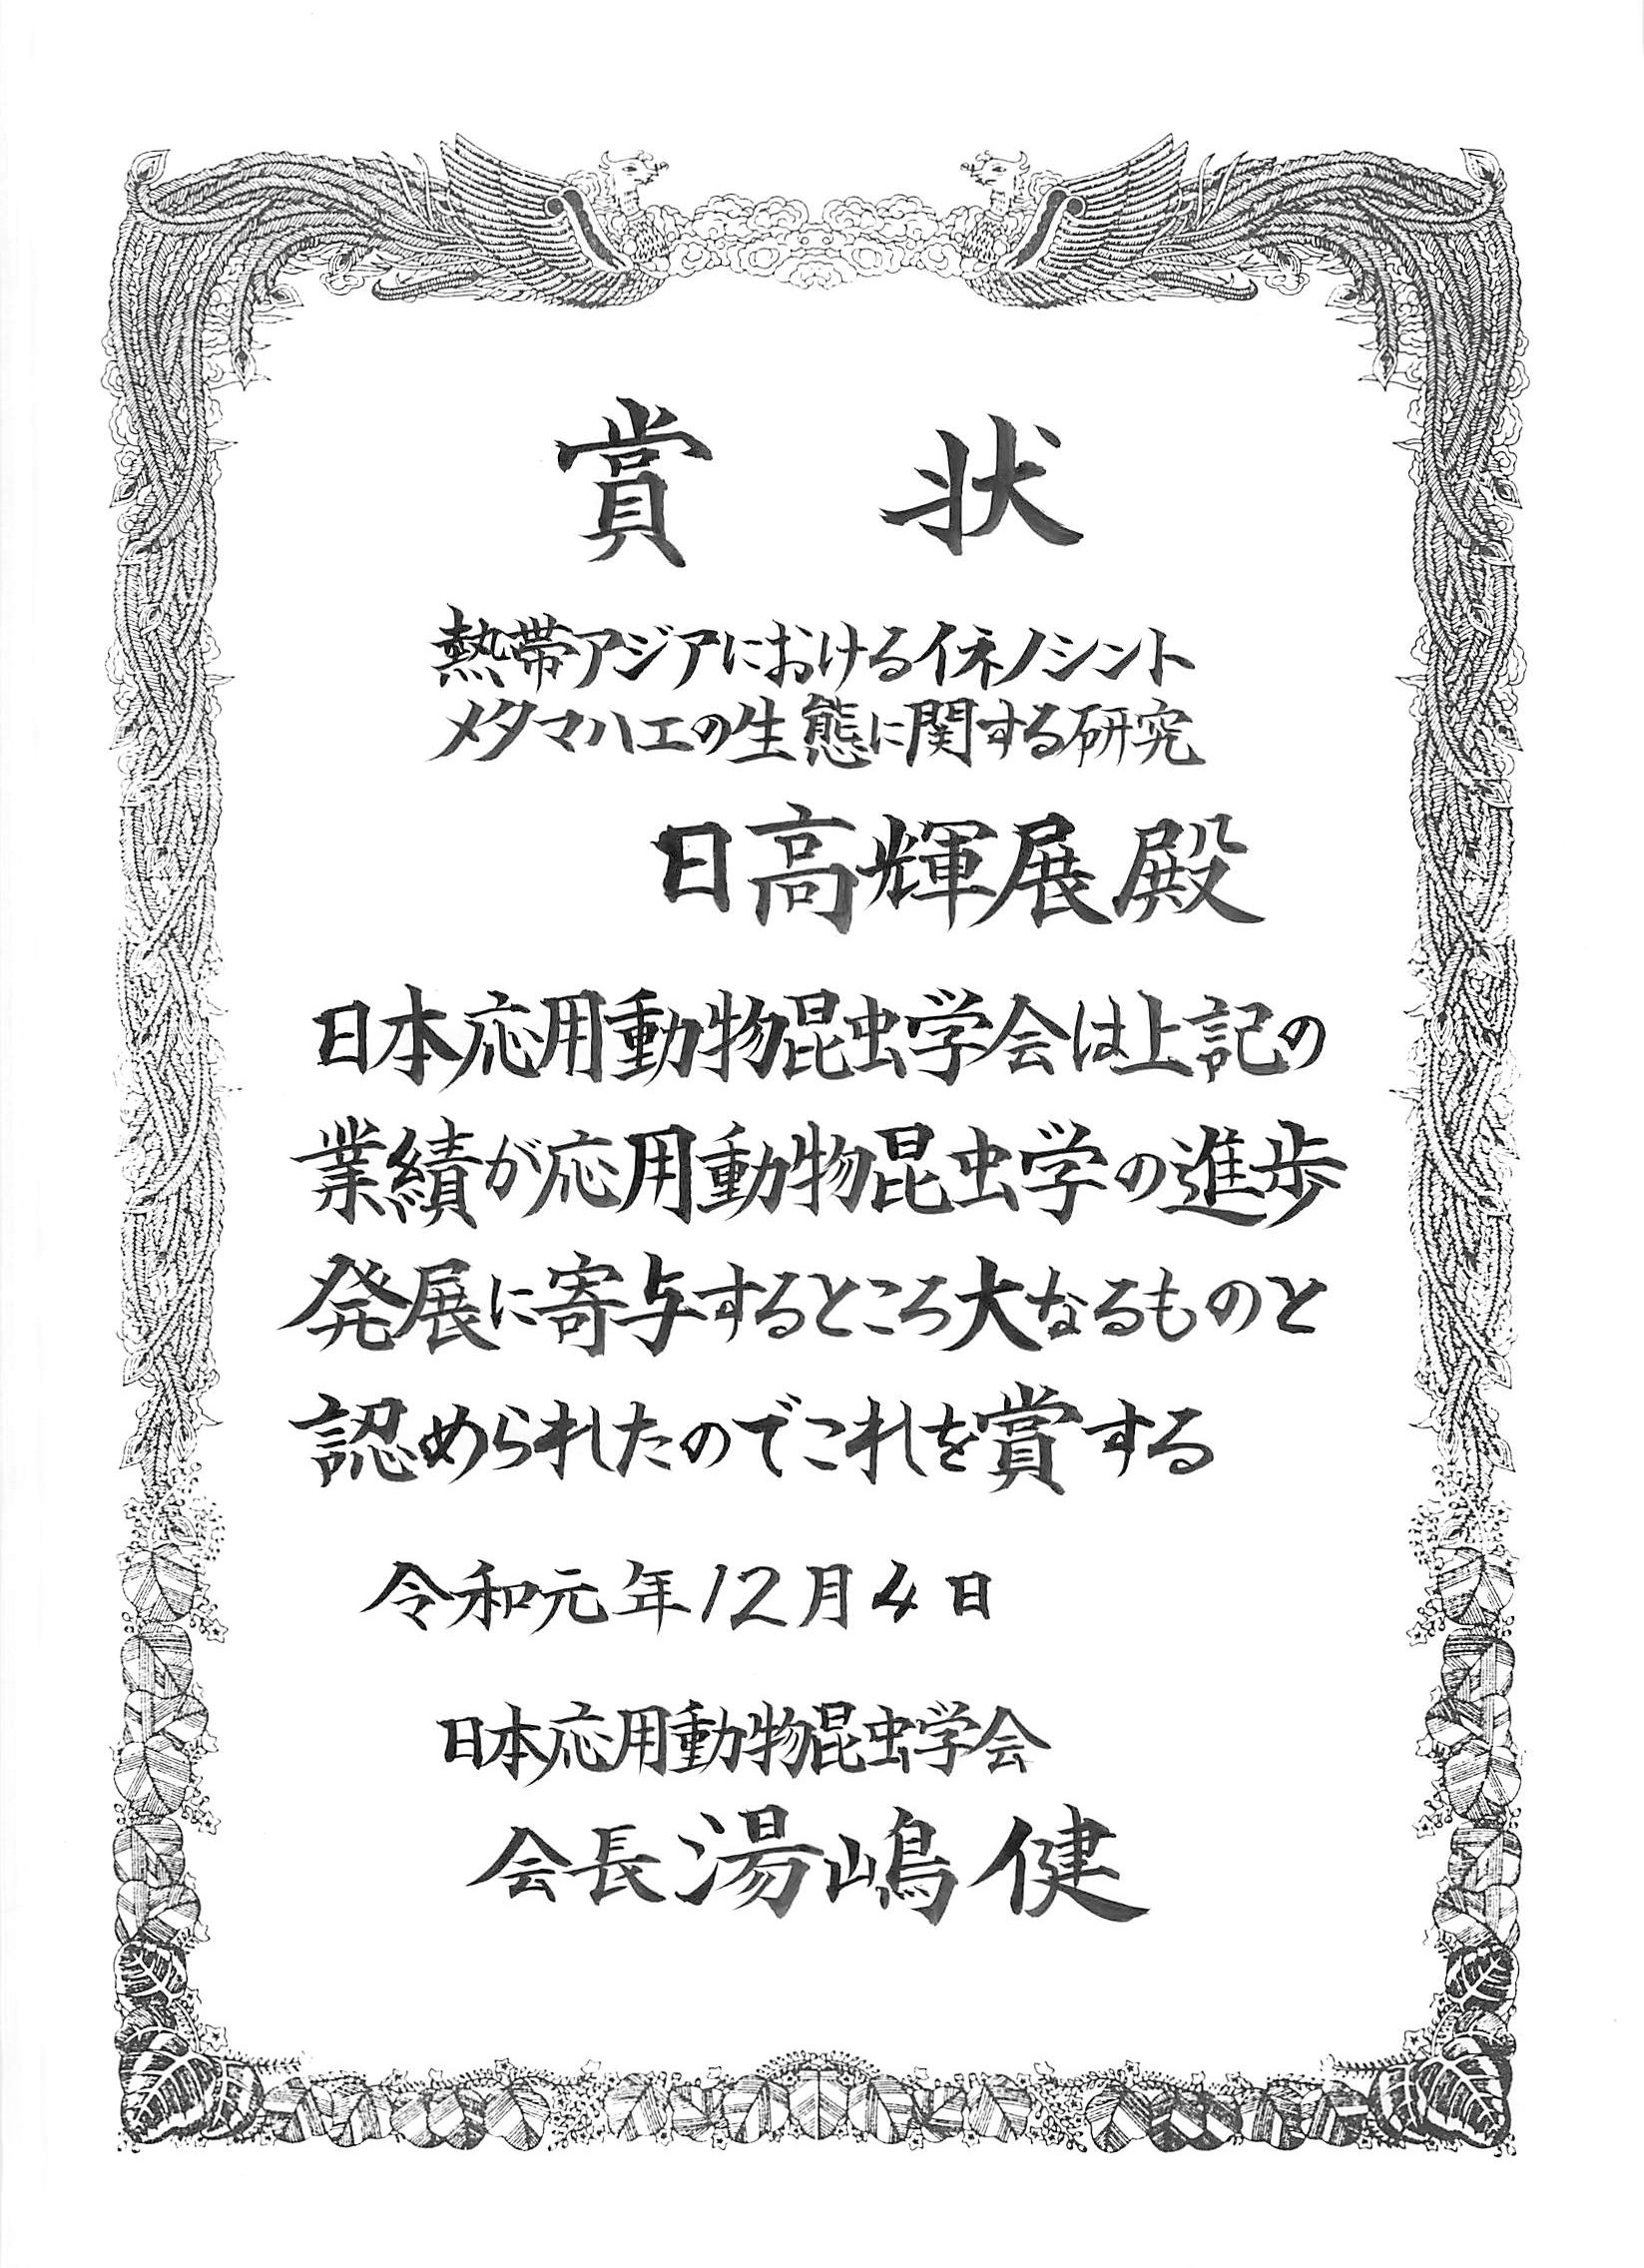 賞状
熱帯アジアにおけるイネノシント
メタマハエの生態に関する研究
日高輝展殿
日本応用動物昆虫学会は上記の
業績が応用動物昆虫学の進歩
発展に寄与するところ大なるものと
認められたのでこれを賞する
令和元年12月4日
日本応用動物昆虫学会
会長湯嶋健